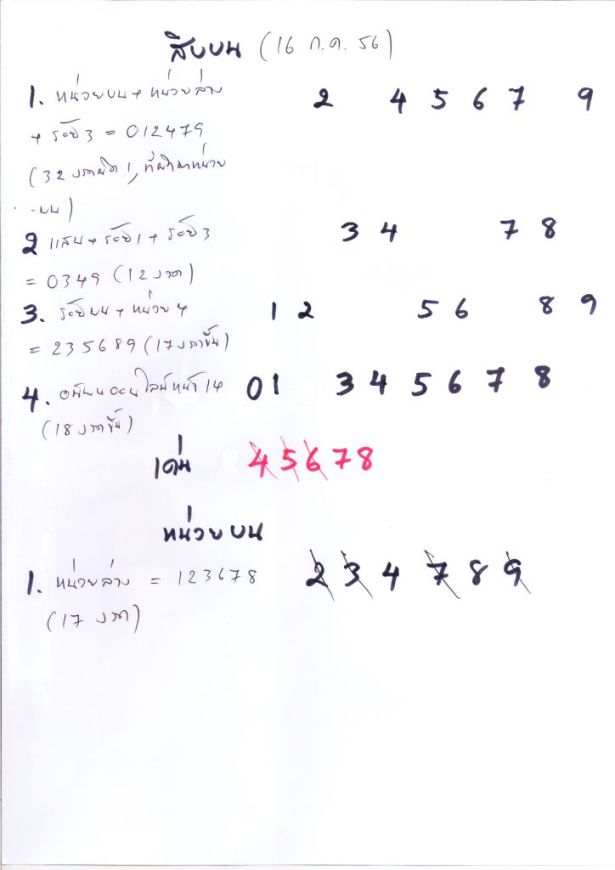 สิบบน (16 ก.ค. 56)
1. หน่วยบน + หน่วยล่าง 2 4 5 6 7 9
+ ร้อย 3 = 012479
(32 งวดผิด 1,
บน)
2 แสน + ร้อย 1 + ร้อย 3 3 4 7 8
= 0349 (12 งวด)
3. ร้อยบน + หน่วย 4 1 2 5 6 8 9
= 235689 (17 งวดขึ้น)
4. หน้า 14 0 1 3 4 5 6 7 8
(18 งวดขึ้น)
เด่น 4 5 6 7 8
หน่วยบน
1. หน่วยล่าง = 123678 2 3 4 7 8 9
(17 งวด)